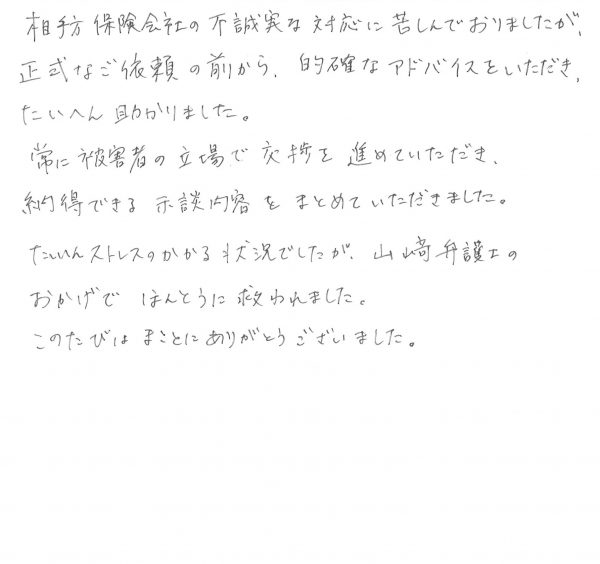 相手方保険会社の不誠実な対応に苦しんでおりましたが、
正式なご依頼の前から、的確なアドバイスをいただき、
たいへん助かりました。
常に被害者の立場で交捗を進めていただき、
納得できる示談内容をまとめていただきました。
たいへんストレスのかかる状況でしたが、山﨑弁護士の
おかげでほんとうに救われました。
このたびはまことにありがとうございました。